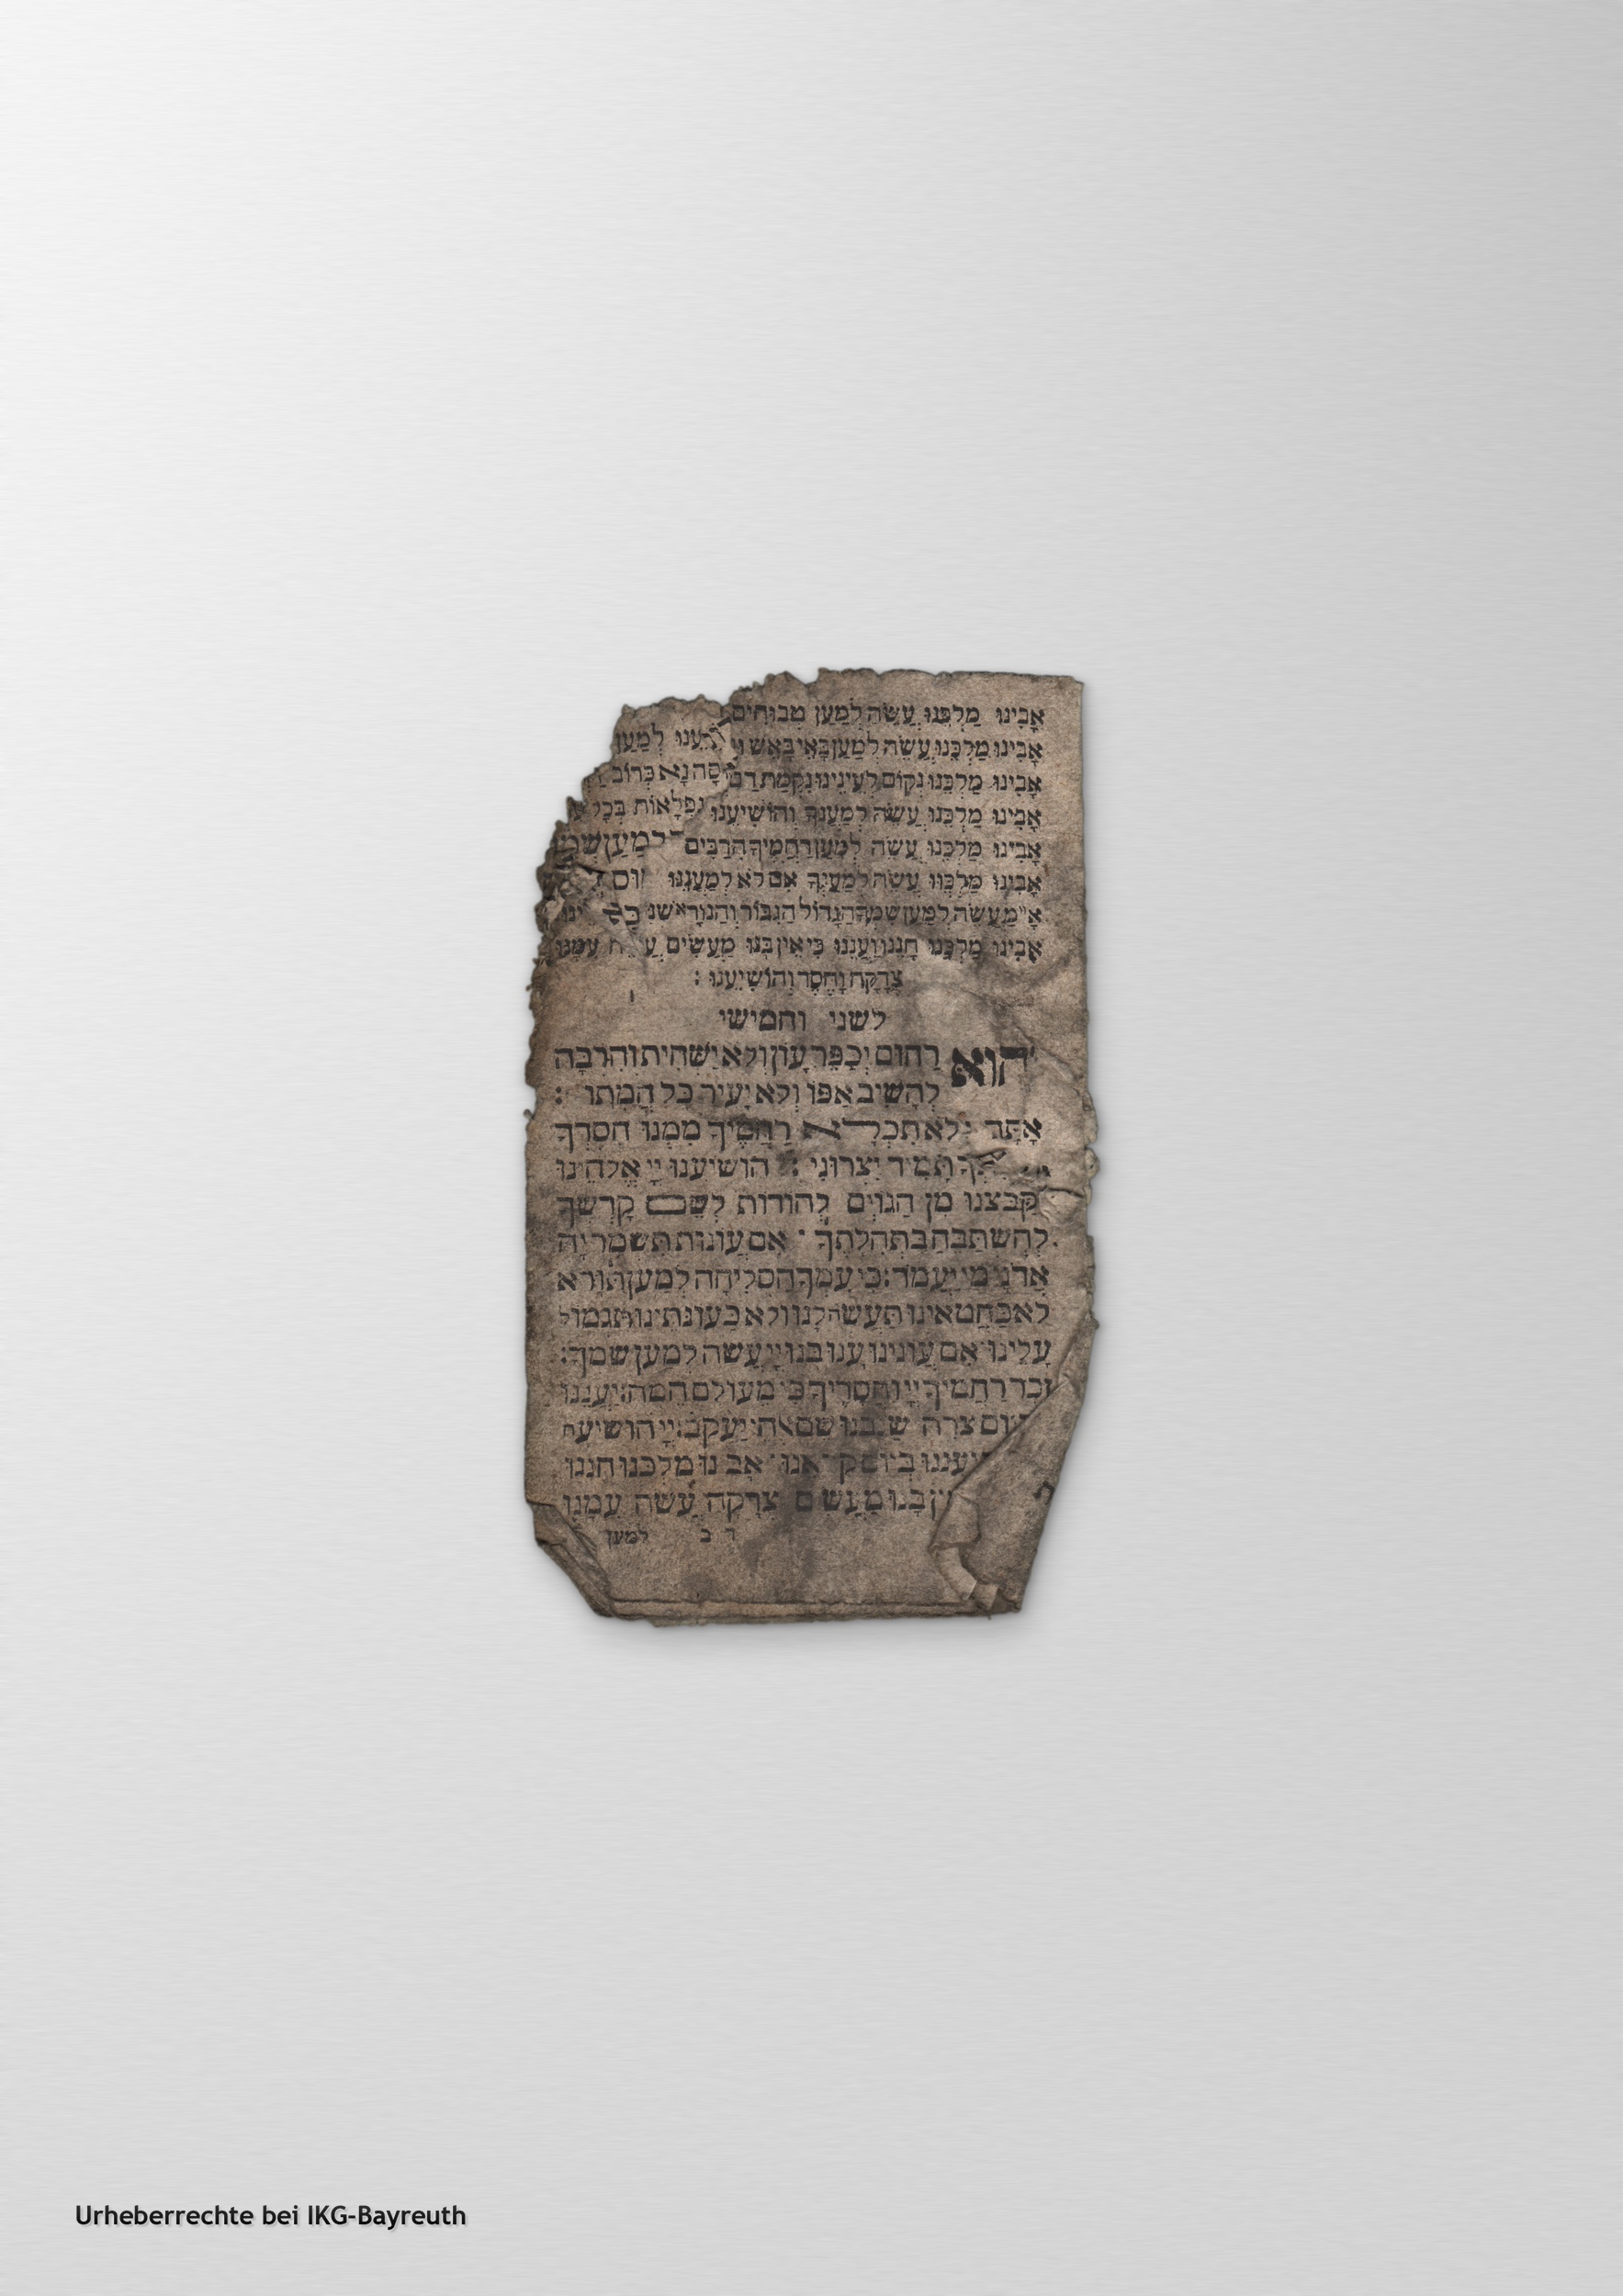 אָבִינוּ מַלְכֵּנוּ עֲשֵׂה לְמַעַן טבוחים
אָבִינוּ מַלְכֵּנוּ עֲשֵׂה לְמַעַן בָּאֵי בָאֵשׁ לְמַעַן
אָבִינוּ מַלְכֵּנוּ נְקוֹם לְעֵינֵינוּ נִקְמַת נָא כְּרוֹב
אָבִינוּ מַלְכֵּנוּ עֲשֵׂה לְמַעַנְךָ וְהוֹשִׁיעֵנוּ נִפְלָאוֹת
אָבִינוּ מַלְכֵּנוּ עֲשֵׂה לְמַעַן רַחֲמֶיךָ הָרַבִּים לְמַעַן
אָבִינוּ עֲשֵׂה אִם לֹא לְמַעֲנֵנוּ
א״מ עֲשֵׂה לְמַעַן שִׁמְךָ הַגָּדוֹל הַגִּבּוֹר וְהַנּוֹרָא
אָבִינוּ מַלְכֵּנוּ חָנֵּנוּ וַעֲנֵנוּ כִּי אֵין בָּנוּ מַעֲשִׂים עִמָּנוּ
צְדָקָה וָחֶסֶד וְהוֹשִׁיעֵנוּ :
לשני וחמישי
והוא רַחוּם יְכַפֵּר עָוֹן וְלֹא יַשְׁחִית וְהִרְבָּה
לְהָשִׁיב אַפּוֹ וְלֹא יָעִיר כל חֲמָתוֹ :
אַתָּה לֹא תִכְלָא רַחֲמֶיךָ מִמֶּנּוּ חַסְדְּךָ
תָּמִיד יִצְּרוּנִי : הושיענו יְיָ אֱלֹהֵינוּ
וְקַבְּצֵנוּ מִן הַגּוֹיִם לְהוֹדוֹת לְשֵׁם קָדְשֶׁךָ
לְהִשְׁתַּבֵּחַ בִּתְהִלָּתֶךָ אִם עֲוֹנוֹת תִּשְׁמָר יָהּ
אֲדֹנָי מִי יַעֲמֹד : כִּי עִמְּךָ הַסְּלִיחָה לְמַעַן תִּוָּרֵא
לֹא כַחֲטָאֵינוּ תַּעֲשֶׂה לָּנוּ וְלֹא כַעֲוֹנֹתֵינוּ תִּגְמוֹל
עָלֵינוּ אִם עֲוֹנֵינוּ עָנוּ בָנוּ יְיָ עֲשֵׂה לְמַעַן שְׁמֶךָ :
זכר רַחֲמֶיךָ יְיָ וַחֲסָדֶיךָ כִּי מֵעוֹלָם הֵמָּה : יַעֲנֵנוּ
צרה יַעֲקֹב : יְיָ הוֹשִׁיעָה
אָבִינוּ מַלְכֵּנוּ חָנֵּנוּ
בָּנוּ צְדָקָה עֲשֵׂה עִמָּנוּ
למען
Urheberrechte bei IKG-Bayreuth